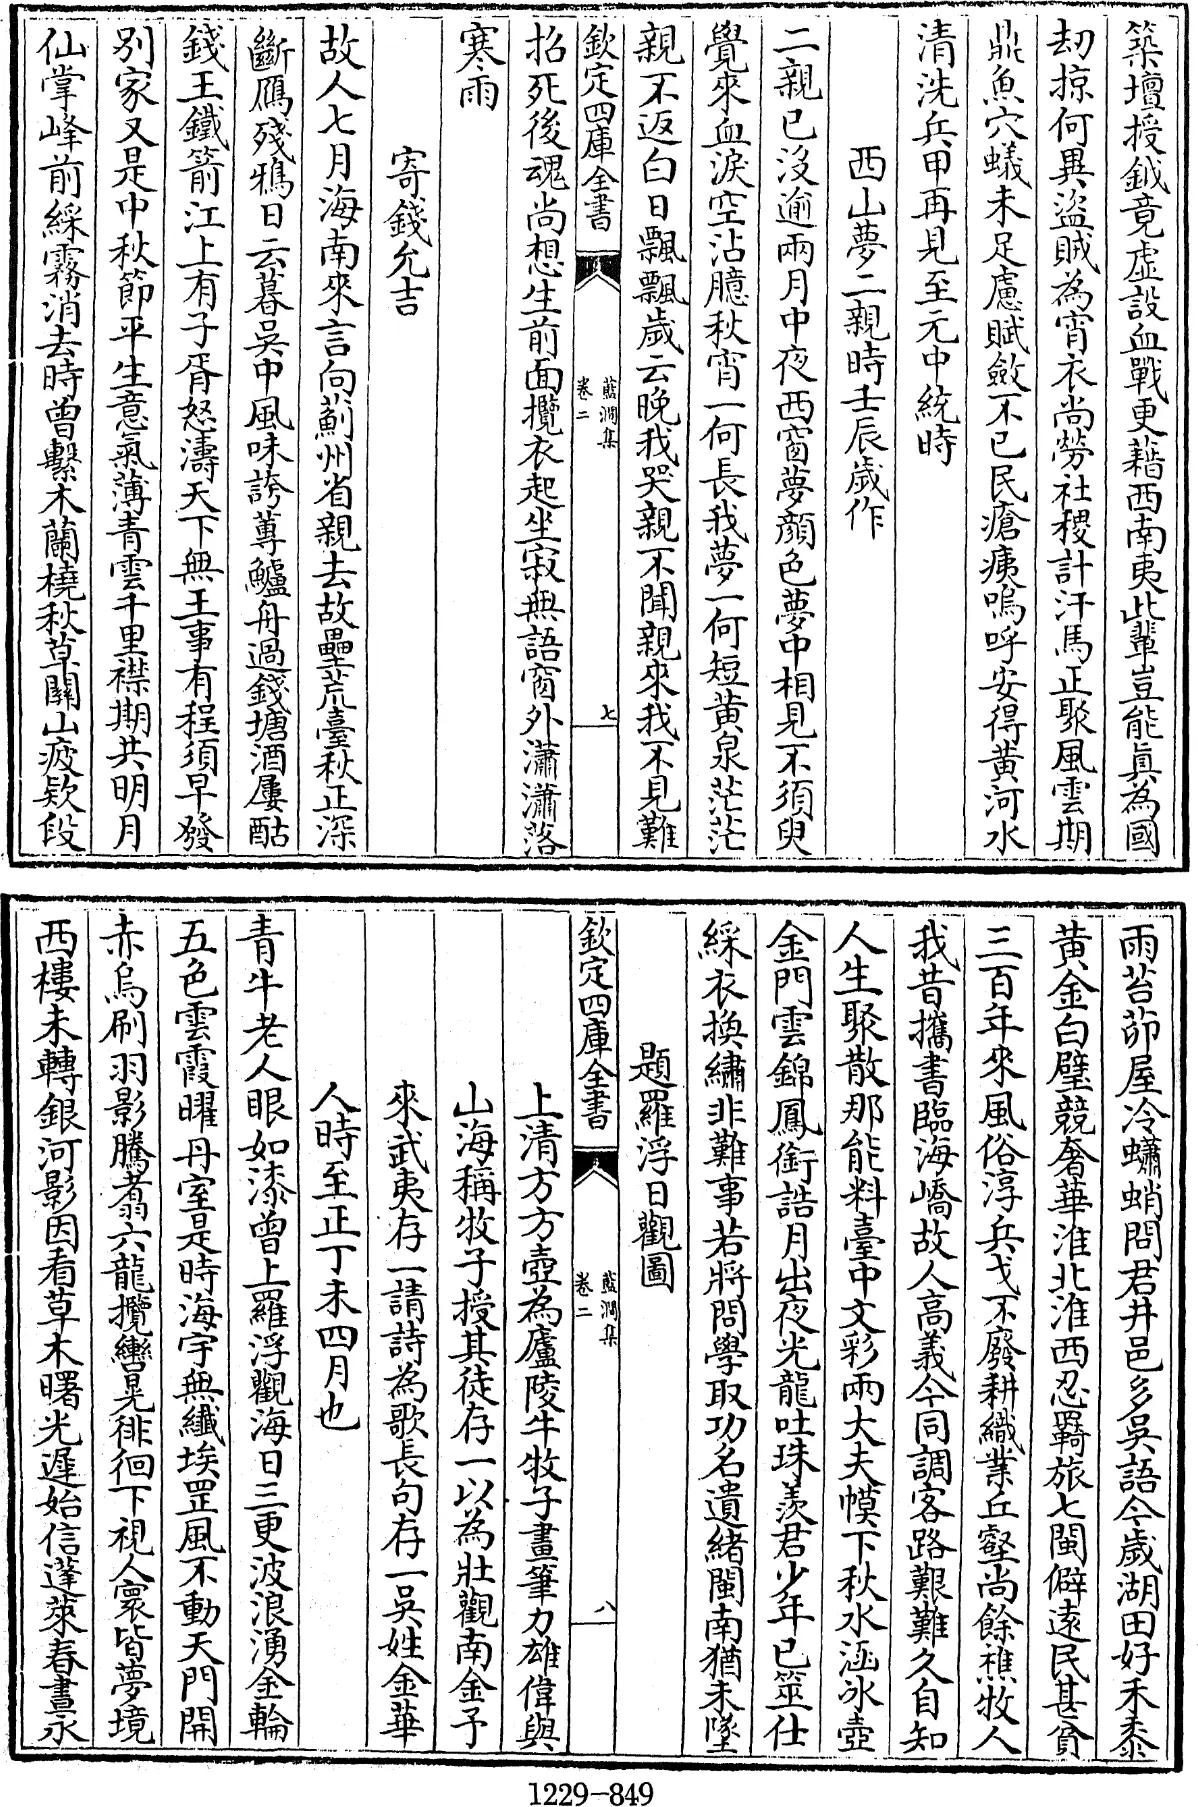 築壇授鉞竟虛設血戰更藉西南夷此輩豈能真為國
刼掠何異盜賊為宵衣尚勞社稷計汗馬正聚風雲期
鼎魚穴蟻未足慮賦斂不已民瘡痍嗚呼安得黃河水
清洗兵甲再見至元中統時
西山夢二親時壬辰歲作
二親已沒逾兩月中夜西窗夢顏色夢中相見不須臾
覺來血淚空沾臆秋宵一何長我夢一何短黃泉茫茫
親不返白日飄飄歲云晚我哭親不聞親來我不見難
欽定四庫全書
藍澗集
卷二
七
招死後魂尚想生前面攬衣起坐寂無語窗外瀟瀟落
寒雨
寄錢允吉
故人七月海南來言向薊州省親去故壘荒臺秋正深
斷鴈殘鴉日云暮吳中風味誇蓴鱸舟過錢塘酒屢酤
錢王鐵箭江上有子胥怒濤天下無王事有程須早發
別家又是中秋節平生意氣薄青雲千里襟期共明月
仙掌峰前綵霧消去時曾繫木蘭橈秋草關山疲欵段
雨苔茆屋冷蠨蛸問君井邑多吳語今歲湖田好禾黍
黃金白璧競奢華淮北淮西忍羇旅七閩僻遠民甚貧
三百年來風俗淳兵戈不廢耕織業丘壑尚餘樵牧人
我昔攜書臨海嶠故人高義今同調客路艱難久自知
人生聚散那能料臺中文彩兩大夫幙下秋水涵冰壺
金門雲錦鳳銜誥月出夜光龍吐珠羨君少年已筮仕
綵衣換繡非難事若將問學取功名遺緒閩南猶未墜
題羅浮日觀圖
欽定四庫全書
藍澗集
卷二
八
上清方方壺為廬陵牛牧子畫筆力雄偉與
山海稱牧子授其徒存一以為壯觀南金予
來武夷存一請詩為歌長句存一吳姓金華
人時至正丁未四月也
青牛老人眼如漆曾上羅浮觀海日三更波浪湧金輪
五色雲霞曜丹室是時海宇無纖埃罡風不動天門開
赤烏刷羽影騰翥六龍攬轡晃徘徊下視人寰皆夢境
西樓未轉銀河影因看草木曙光遲始信蓬萊春晝永
1229-849